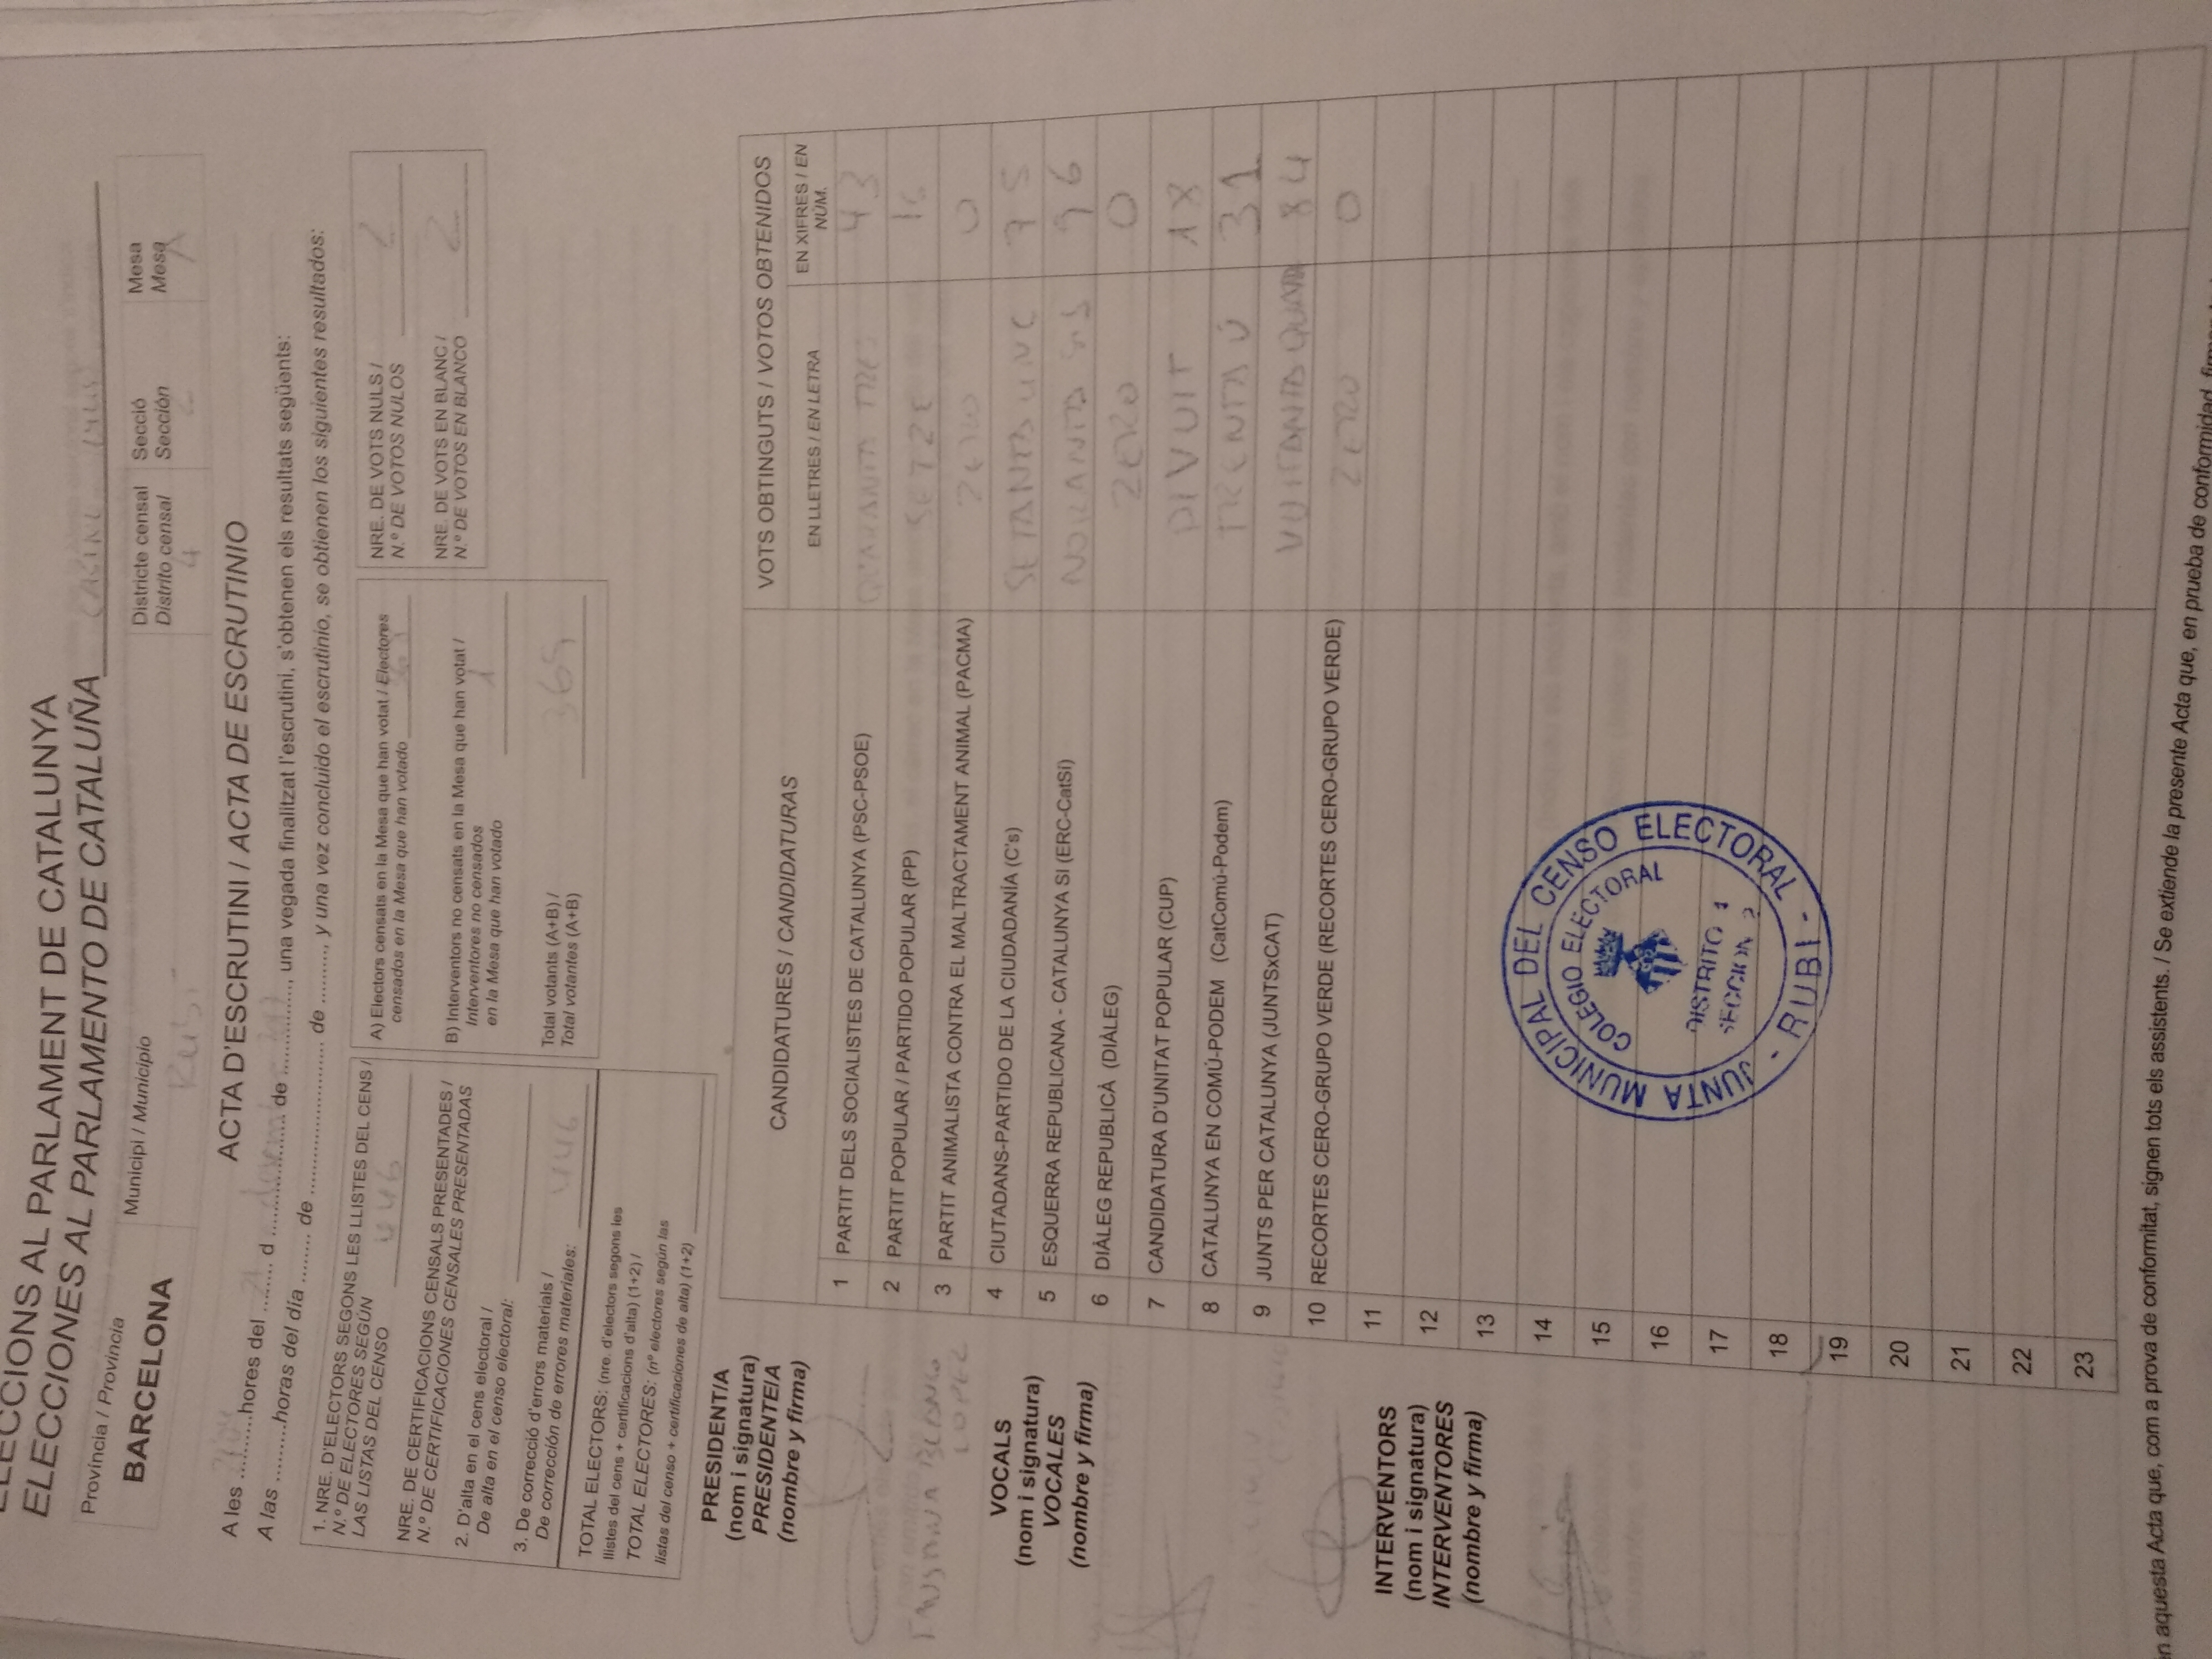 ELECCIONS AL PARLAMENT DE CATALUNYA
ELECCIONES AL PARLAMENTO DE CATALUÑA
Província / Provincia
BARCELONA
Municipi / Municipio
Rubí
Districte censal
Distrito censal
4
Secció
Sección
2
Mesa
Mesa
A
ACTA D'ESCRUTINI / ACTA DE ESCRUTINIO
A les ..........hores del ........ d .................... de ..............., una vegada finalitzat l'escrutini, s'obtenen els resultats següents:
A las .........horas del día ........ de ......................... de ........., y una vez concluido el escrutinio, se obtienen los siguientes resultados:
1. NRE. D'ELECTORS SEGONS LES LLISTES DEL CENS /
N.º DE ELECTORES SEGÚN
LAS LISTAS DEL CENSO 446
NRE. DE CERTIFICACIONS CENSALS PRESENTADES /
N.º DE CERTIFICACIONES CENSALES PRESENTADAS
2. D'alta en el cens electoral /
De alta en el censo electoral:
3. De correcció d'errors materials /
De corrección de errores materiales: 446
TOTAL ELECTORS: (nre. d'electors segons les
llistes del cens + certificacions d'alta) (1+2) /
TOTAL ELECTORES: (nº electores según las
listas del censo + certificaciones de alta) (1+2)
A) Electors censats en la Mesa que han votat / Electores
censados en la Mesa que han votado
B) Interventors no censats en la Mesa que han votat /
Interventores no censados
en la Mesa que han votado 1
Total votants (A+B) /
Total votantes (A+B) 369
NRE. DE VOTS NULS /
N.º DE VOTOS NULOS 2
NRE. DE VOTS EN BLANC /
N.º DE VOTOS EN BLANCO 2
PRESIDENT/A
(nom i signatura)
PRESIDENTE/A
(nombre y firma)
BLANCO
LOPEZ
VOCALS
(nom i signatura)
VOCALES
(nombre y firma)
INTERVENTORS
(nom i signatura)
INTERVENTORES
(nombre y firma)
CANDIDATURES / CANDIDATURAS
VOTS OBTINGUTS / VOTOS OBTENIDOS
EN LLETRES / EN LETRA
EN XIFRES / EN
NÚM.
1 PARTIT DELS SOCIALISTES DE CATALUNYA (PSC-PSOE) QUARANTA TRES 43
2 PARTIT POPULAR / PARTIDO POPULAR (PP) SETZE 16
3 PARTIT ANIMALISTA CONTRA EL MALTRACTAMENT ANIMAL (PACMA) ZERO 0
4 CIUTADANS-PARTIDO DE LA CIUDADANÍA (C's) SETANTA UNC 75
5 ESQUERRA REPUBLICANA - CATALUNYA SI (ERC-CatSí) NORANTA SIS 96
6 DIÀLEG REPUBLICÀ (DIÀLEG) ZERO 0
7 CANDIDATURA D'UNITAT POPULAR (CUP) DIVUIT 18
8 CATALUNYA EN COMÚ-PODEM (CatComú-Podem) TRENTA Ú 31
9 JUNTS PER CATALUNYA (JUNTSxCAT) VUITANTA 84
10 RECORTES CERO-GRUPO VERDE (RECORTES CERO-GRUPO VERDE) ZERO 0
11
12
13
14
15
16
17
18
19
20
21
22
23
JUNTA MUNICIPAL DEL CENSO ELECTORAL
COLEGIO ELECTORAL
DISTRITO
SECCION 2
- RUBI -
aquesta Acta que, com a prova de conformitat, signen tots els assistents. / Se extiende la presente Acta que, en prueba de conformidad,